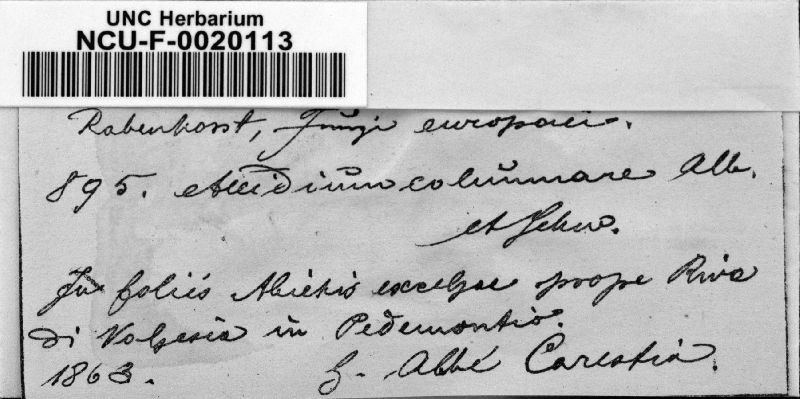 UNC Herbarium
NCU-F-0020113
Rabenhorst, Fungi europaei.
895. Aecidium columnare Alb.
et Schw.
In foliis Abietis excelsae prope Riva
di Valsesia in Pedemontio.
1863. G. Abbé Carestia.